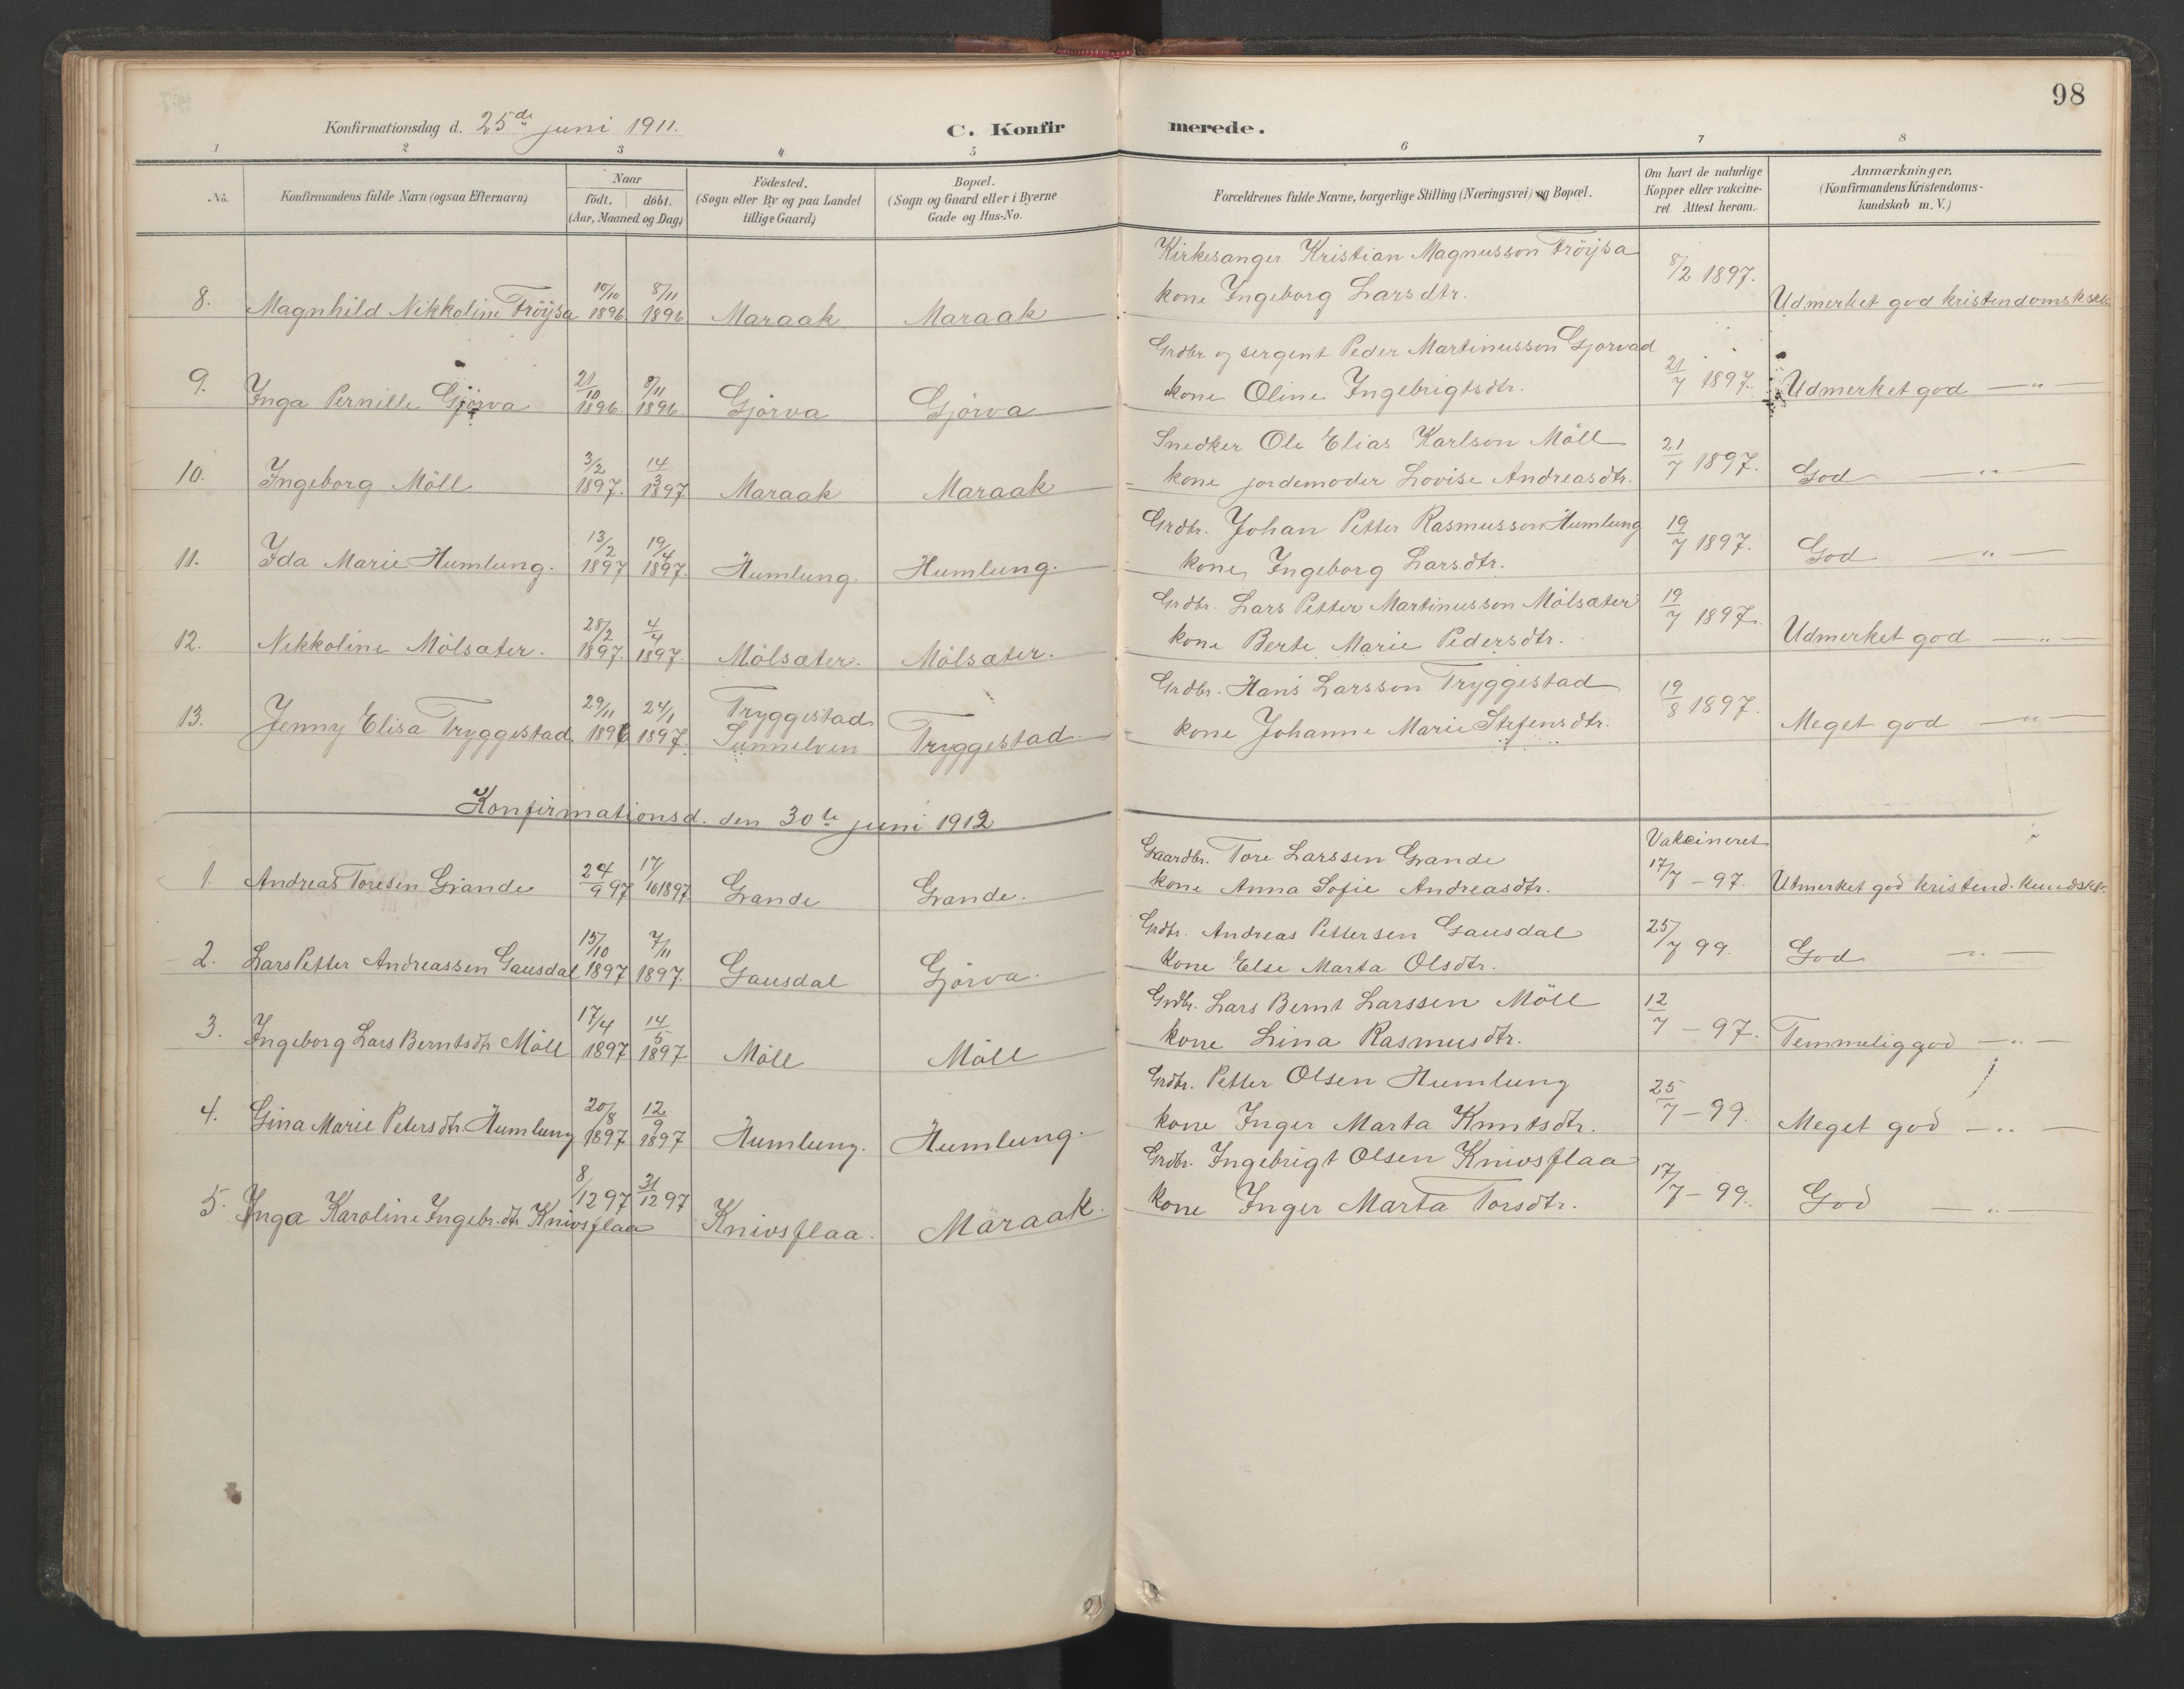 98
Konfirmationsdag d. 25de juni 1911.
C. Konfirmerede.
1 2 3 4 5 6 7 8
No.
Konfirmandens fulde Navn (ogsaa Efternavn)
Naar
födt. döbt.
(Aar, Maaned og Dag)
Födested.
(Sogn eller By og paa Landet
tillige Gaard)
Bopæl.
(Sogn og Gaard eller i Byerne
Gade og Hus-No.
Forældrenes fulde Navne, borgerlige Stilling (Næringsvei) og Bopæl.
Om havt de naturlige
Kopper eller vakcine-
ret Attest herom.
Anmærkninger.
(Konfirmandens Kristendoms-
kundskab m. V.)
Kirkesanger Kristian Magnusson Fröysa
8. Magnhild Nikkoline Fröysa 10/10 1896 8/11 1896 Maraak Maraak kone Ingeborg Larsdtr. 8/2 1897. Udmerket god kristendomskskb.
Grdbr. og sergent Peder Martinusson Gjorvad
9. Inga Pernille Gjörva 21/10 1896 8/11 1896 Gjörva Gjörva kone Oline Ingebrigtsdtr. 21/7 1897. Udmerket god —〃—
Snedker Ole Elias Karlson Möll
10. Ingeborg Möll 3/2 1897. 14/3 1897 Maraak Maraak kone jordemoder Lovise Andreasdtr. 21/7 1897. God —〃—
Grdbr. Johan Petter Rasmusson Humlung
11. Ida Marie Humlung. 13/2 1897 19/4 1897. Humlung. Humlung. kone, Ingeborg Larsdtr. 19/7 1897. God —〃—
Grdbr. Lars Petter Martinusson Mölsæter
12. Nikkoline Mölsæter. 28/2 1897. 4/4 1897. Mölsæter. Mölsæter. kone Berte Marie Pedersdtr. 19/7 1897. Udmerket god —〃—
Grdbr. Hans Larsson Tryggestad
13. Jenny Elisa Tryggestad 29/11 1896 24/1 1897. Tryggestad Sunnelven Tryggestad. kone Johanne Marie Stefensdtr. 19/8 1897. Meget god —〃—
Konfirmationsd. den 30te juni 1912
Vakcineret
Gaardbr. Tore Larssen Grande
1. Andreas Toresen Grande 24/9 97 17/10 1897. Grande Grande. kone Anna Sofie Andreasdtr. 17/7 - 97. Utmerket god kristend. kundskb.
Grdbr. Andreas Pettersen Gausdal
2. Lars Petter Andreassen Gausdal 15/10 1897 7/11 1897. Gausdal Gjörva. kone Else Marta Olsdtr. 25/7 99. God —〃—
Grdbr. Lars Bernt Larssen Möll
3. Ingeborg Lars Berntsdtr. Möll 17/4 1897 14/5 1897 Möll Möll kone Lina Rasmusdtr. 12/7 - 97. Temmelig god —〃—
Grdbr. Petter Olsen Humlung
4. Gina Marie Petersdtr. Humlung 20/8 1897 12/9 1897 Humlung. Humlung. kone Inger Marta Knutsdtr. 25/7 - 99. Meget god —〃—
Grdbr. Ingebrigt Olsen Knivsflaa
5. Inga Karoline Ingebr.dtr. Knivsflaa 8/12 97 31/12 97 Knivsflaa. Maraak. kone Inger Marta Torsdtr. 17/7 - 99. God —〃—